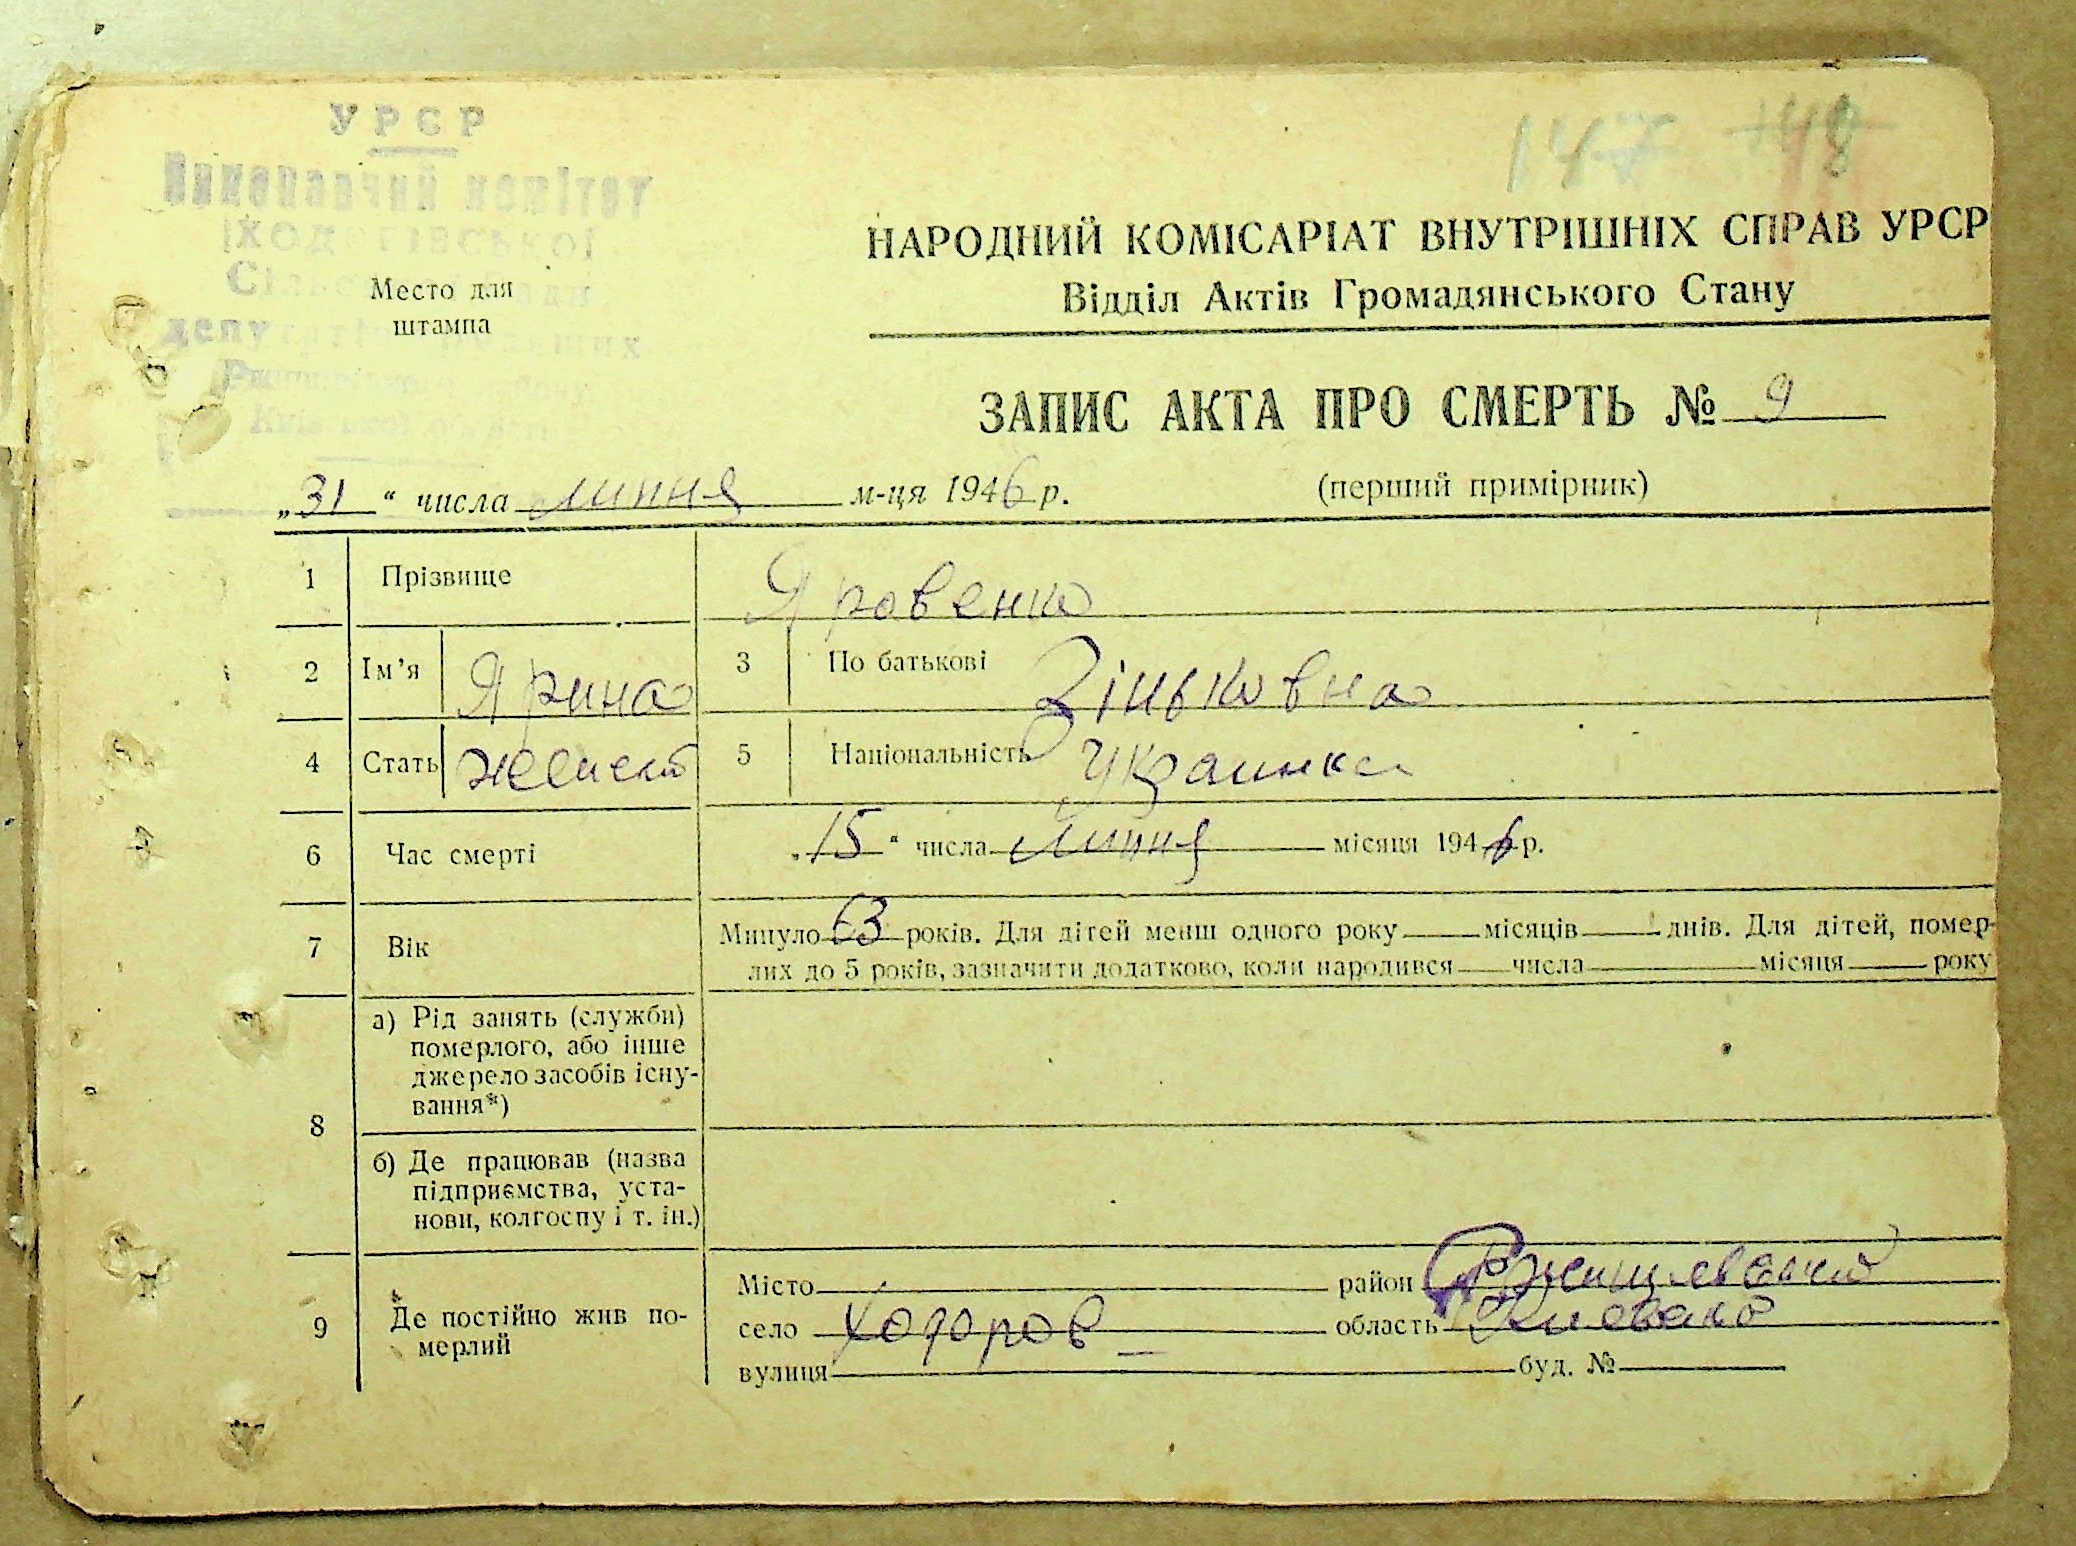 УРСР
Виконавчий комітет
ХОДОРІВСЬКОЇ
депутатів трудящих
Место для
штампа
147 148
НАРОДНИЙ КОМІСАРІАТ ВНУТРІШНІХ СПРАВ УРСР
Відділ Актів Громадянського Стану
ЗАПИС АКТА ПРО СМЕРТЬ № 9
„31“ числа липня м-ця 1946 р. (перший примірник)
1 Прізвище Яровенко
2 Ім’я Ярина 3 По батькові Зіньковна
4 Стать женска 5 Національність Украинка
6 Час смерті „15“ числа липня місяця 1946 р.
7 Вік Минуло 63 років. Для дітей менш одного року місяців днів. Для дітей, помер-
лих до 5 років, зазначити додатково, коли народився числа місяця року
8 а) Рід занять (служби)
померлого, або інше
джерело засобів існу-
вання*)
б) Де працював (назва
підприємства, уста-
нови, колгоспу і т. ін.)
9 Де постійно жив по-
мерлий
Місто район Ржищевский
село Ходоров область Киевска
вулиця буд. №